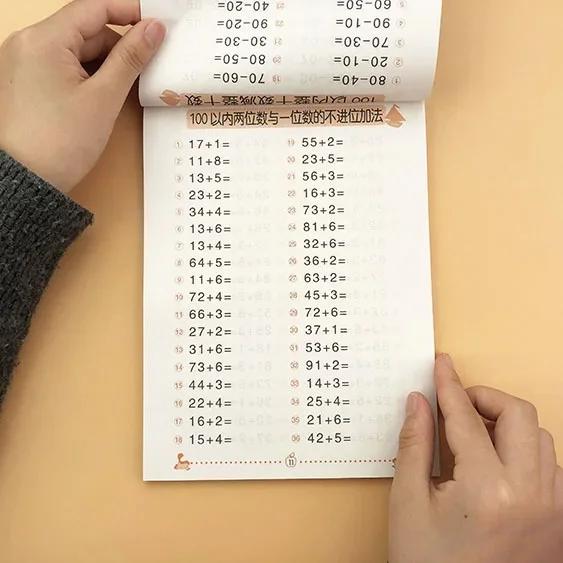 100以内整十数减整十数
① 80-40= ⑲ 70-60=
② 20-10= ⑳ 80-50=
③ 70-30= ㉑ 30-30=
④ 90-10= ㉒ 90-20=
⑤ 60-50= ㉓ 40-20=
100以内两位数与一位数的不进位加法
① 17+1= ⑲ 55+2=
② 11+8= ⑳ 23+5=
③ 13+5= ㉑ 56+3=
④ 23+2= ㉒ 16+3=
⑤ 34+4= ㉓ 73+2=
⑥ 13+6= ㉔ 81+6=
⑦ 13+4= ㉕ 32+6=
⑧ 64+5= ㉖ 36+2=
⑨ 11+6= ㉗ 63+2=
⑩ 72+4= ㉘ 45+3=
⑪ 66+3= ㉙ 72+6=
⑫ 27+2= ㉚ 37+1=
⑬ 31+6= ㉛ 53+6=
⑭ 73+6= ㉜ 91+2=
⑮ 44+3= ㉝ 14+3=
⑯ 22+4= ㉞ 25+4=
⑰ 16+2= ㉟ 21+6=
⑱ 15+4= ㊱ 42+5=
11